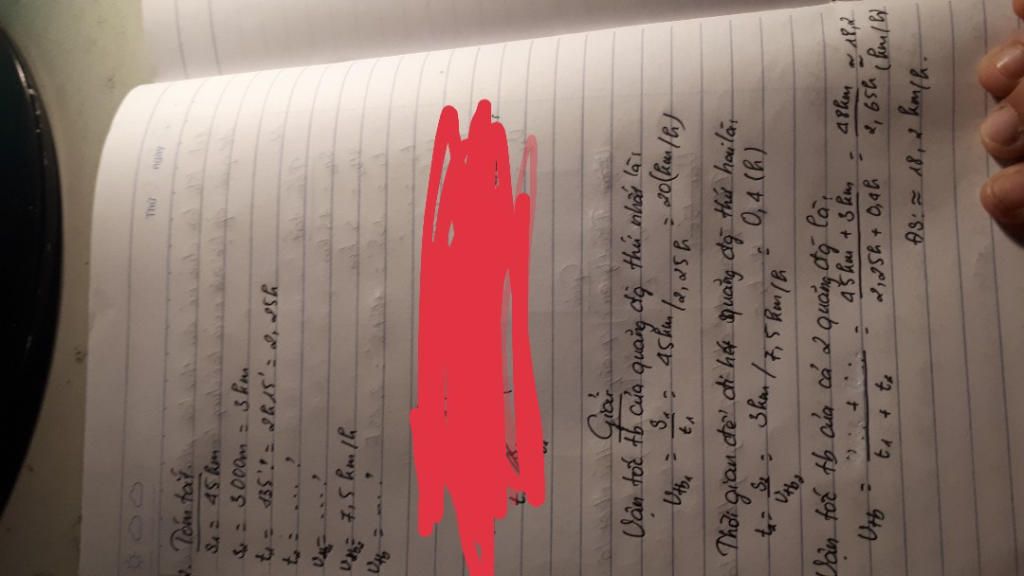 THỨ NGÀY
Tóm tắt.
s₁ = 45 km
s₂ = 3000m = 3 km
t₁ = 135' = 2h15' = 2,25h
t₂ = .....?
vtb₁ = ....?
vtb₂ = 7,5 km/h
vtb = ....?
t
Giải
Vận tốc tb của quãng đg thứ nhất là:
vtb₁ = s₁/t₁ = 45 km / 2,25 h = 20 (km/h)
Thời gian để đi hết quãng đg thứ hai là:
t₂ = s₂/vtb₂ = 3km / 7,5 km/h = 0,4 (h)
Vận tốc tb của cả 2 quãng đg là:
vtb = (s₁ + s₂)/(t₁ + t₂) = (45km + 3km)/(2,25h + 0,4h) = 48km/2,65h ≈ 18,2 (km/h)
ĐS: ≈ 18,2 km/h.